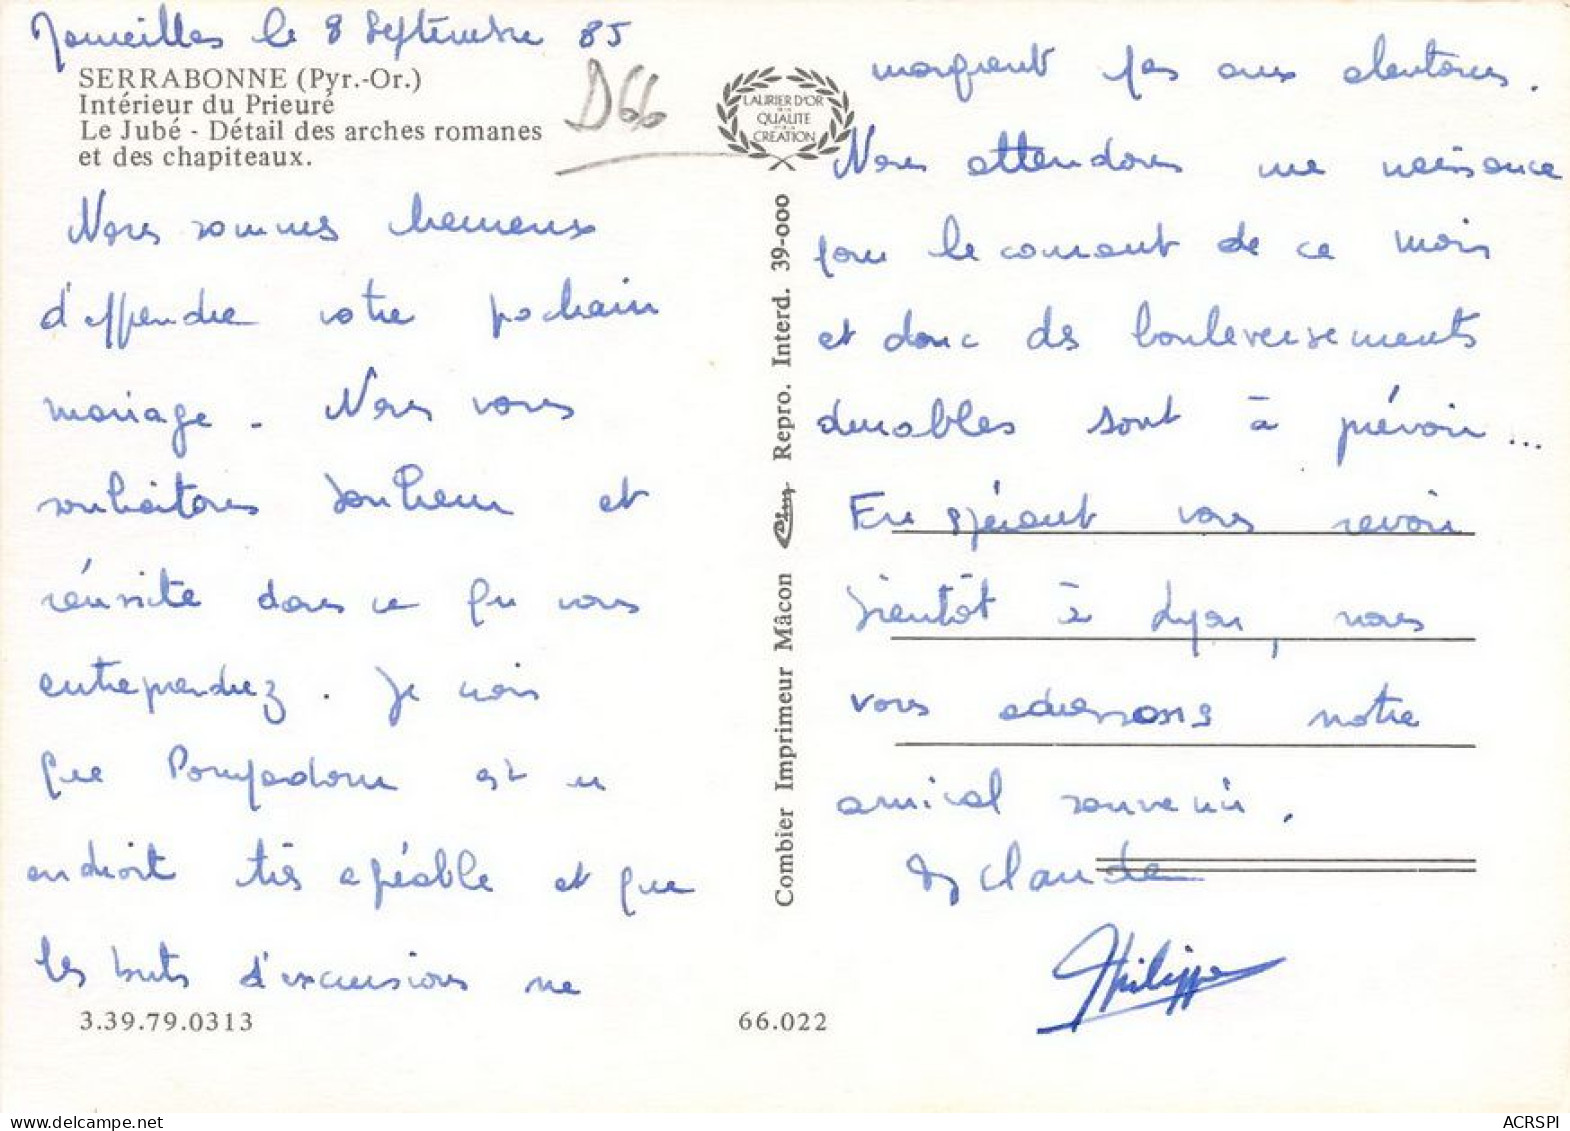 le 8 Septembre 85
SERRABONNE (Pyr.-Or.)
Intérieur du Prieuré
Le Jubé - Détail des arches romanes
et des chapiteaux.
D66
Nous sommes heureux
d'apprendre votre prochain
mariage. Nous vous
souhaitons bonheur et
réussite dans ce que vous
entreprendrez. Je vois
que Pompadour est un
endroit très agréable et que
les buts d'excursions ne
3.39.79.0313
LAURIER D'OR
DE LA
QUALITÉ
CRÉATION
Combier Imprimeur Mâcon Cim Repro. Interd. 39-000
66.022
manquent pas aux alentours.
Nous attendons une naissance
pour le courant de ce mois
et donc des bouleversements
durables sont à prévoir...
En espérant vous revoir
bientôt à Lyon, nous
vous adressons notre
amical souvenir.
Claude
Philippe
ACRSPI